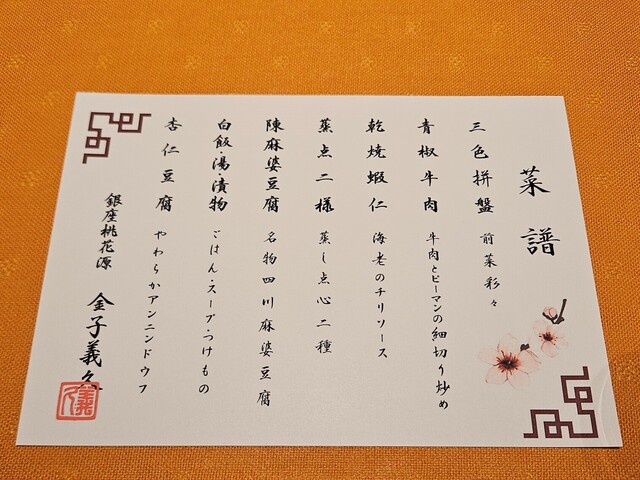 菜譜
三色拼盤 前菜彩々
青椒牛肉 牛肉とピーマンの細切り炒め
乾焼蝦仁 海老のチリソース
蒸点二様 蒸し点心二種
陳麻婆豆腐 名物四川麻婆豆腐
白飯・湯・漬物 ごはん・スープ・つけもの
杏仁豆腐 やわらかアンニンドウフ
銀座桃花源 金子義久